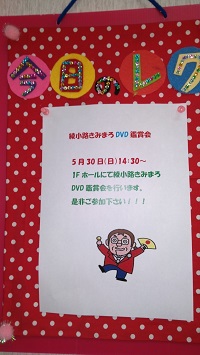 今日のレク
綾小路きみまろDVD鑑賞会
5月30日(日)14:30～
1Fホールにて綾小路きみまろ
DVD鑑賞会を行います。
是非ご参加下さい！！！